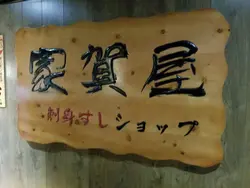 家賀屋
刺身すし ショップ